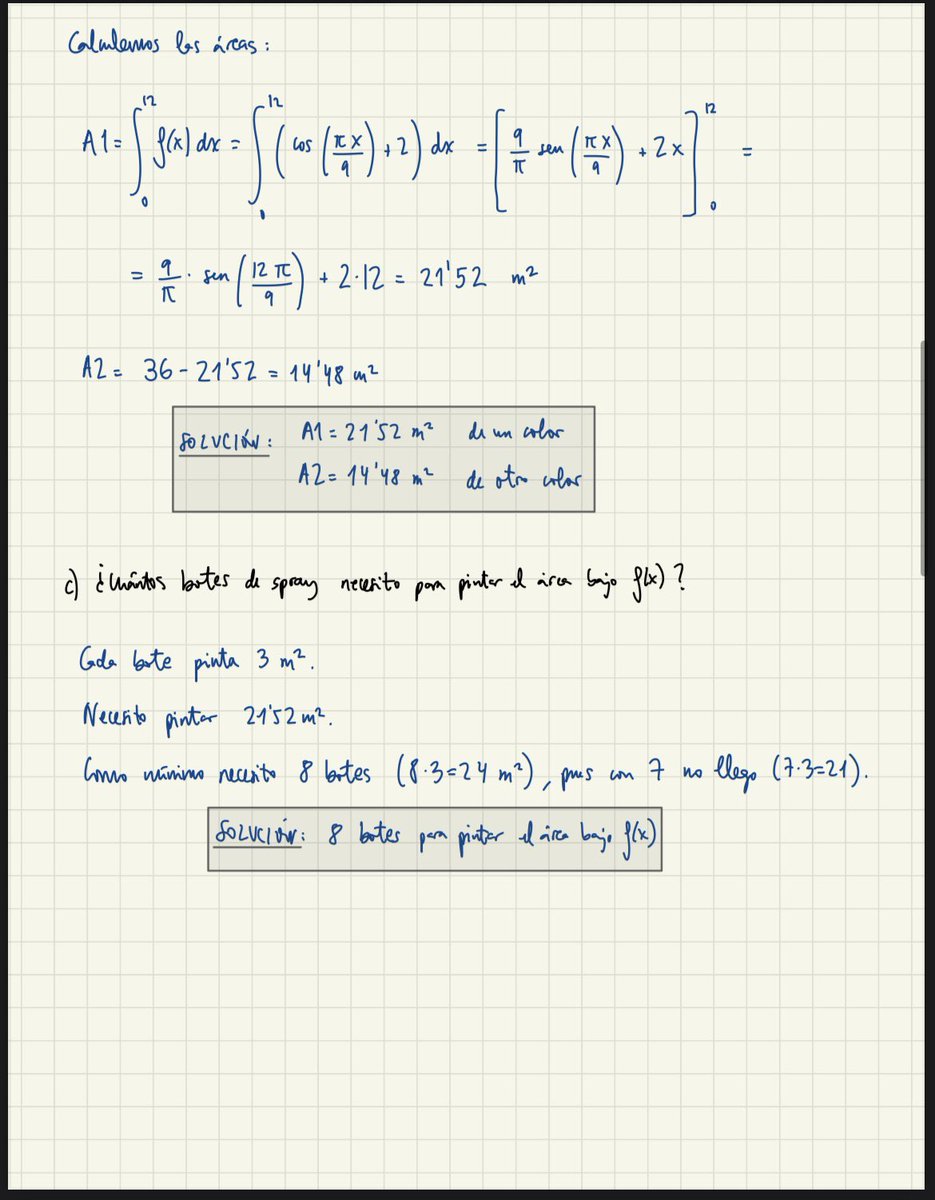 Calculemos las áreas:
A1 = ∫₀¹² f(x) dx = ∫₀¹² (cos (πx/9) + 2) dx = [9/π sen (πx/9) + 2x]₀¹² =
= 9/π · sen (12π/9) + 2·12 = 21'52 m²
A2 = 36 - 21'52 = 14'48 m²
SOLUCIÓN: A1 = 21'52 m² de un color
A2 = 14'48 m² de otro color
c) ¿Cuántos botes de spray necesito para pintar el área bajo f(x)?
Cada bote pinta 3 m².
Necesito pintar 21'52 m².
Como mínimo necesito 8 botes (8·3=24 m²), pues con 7 no llego (7·3=21).
SOLUCIÓN: 8 botes para pintar el área bajo f(x)